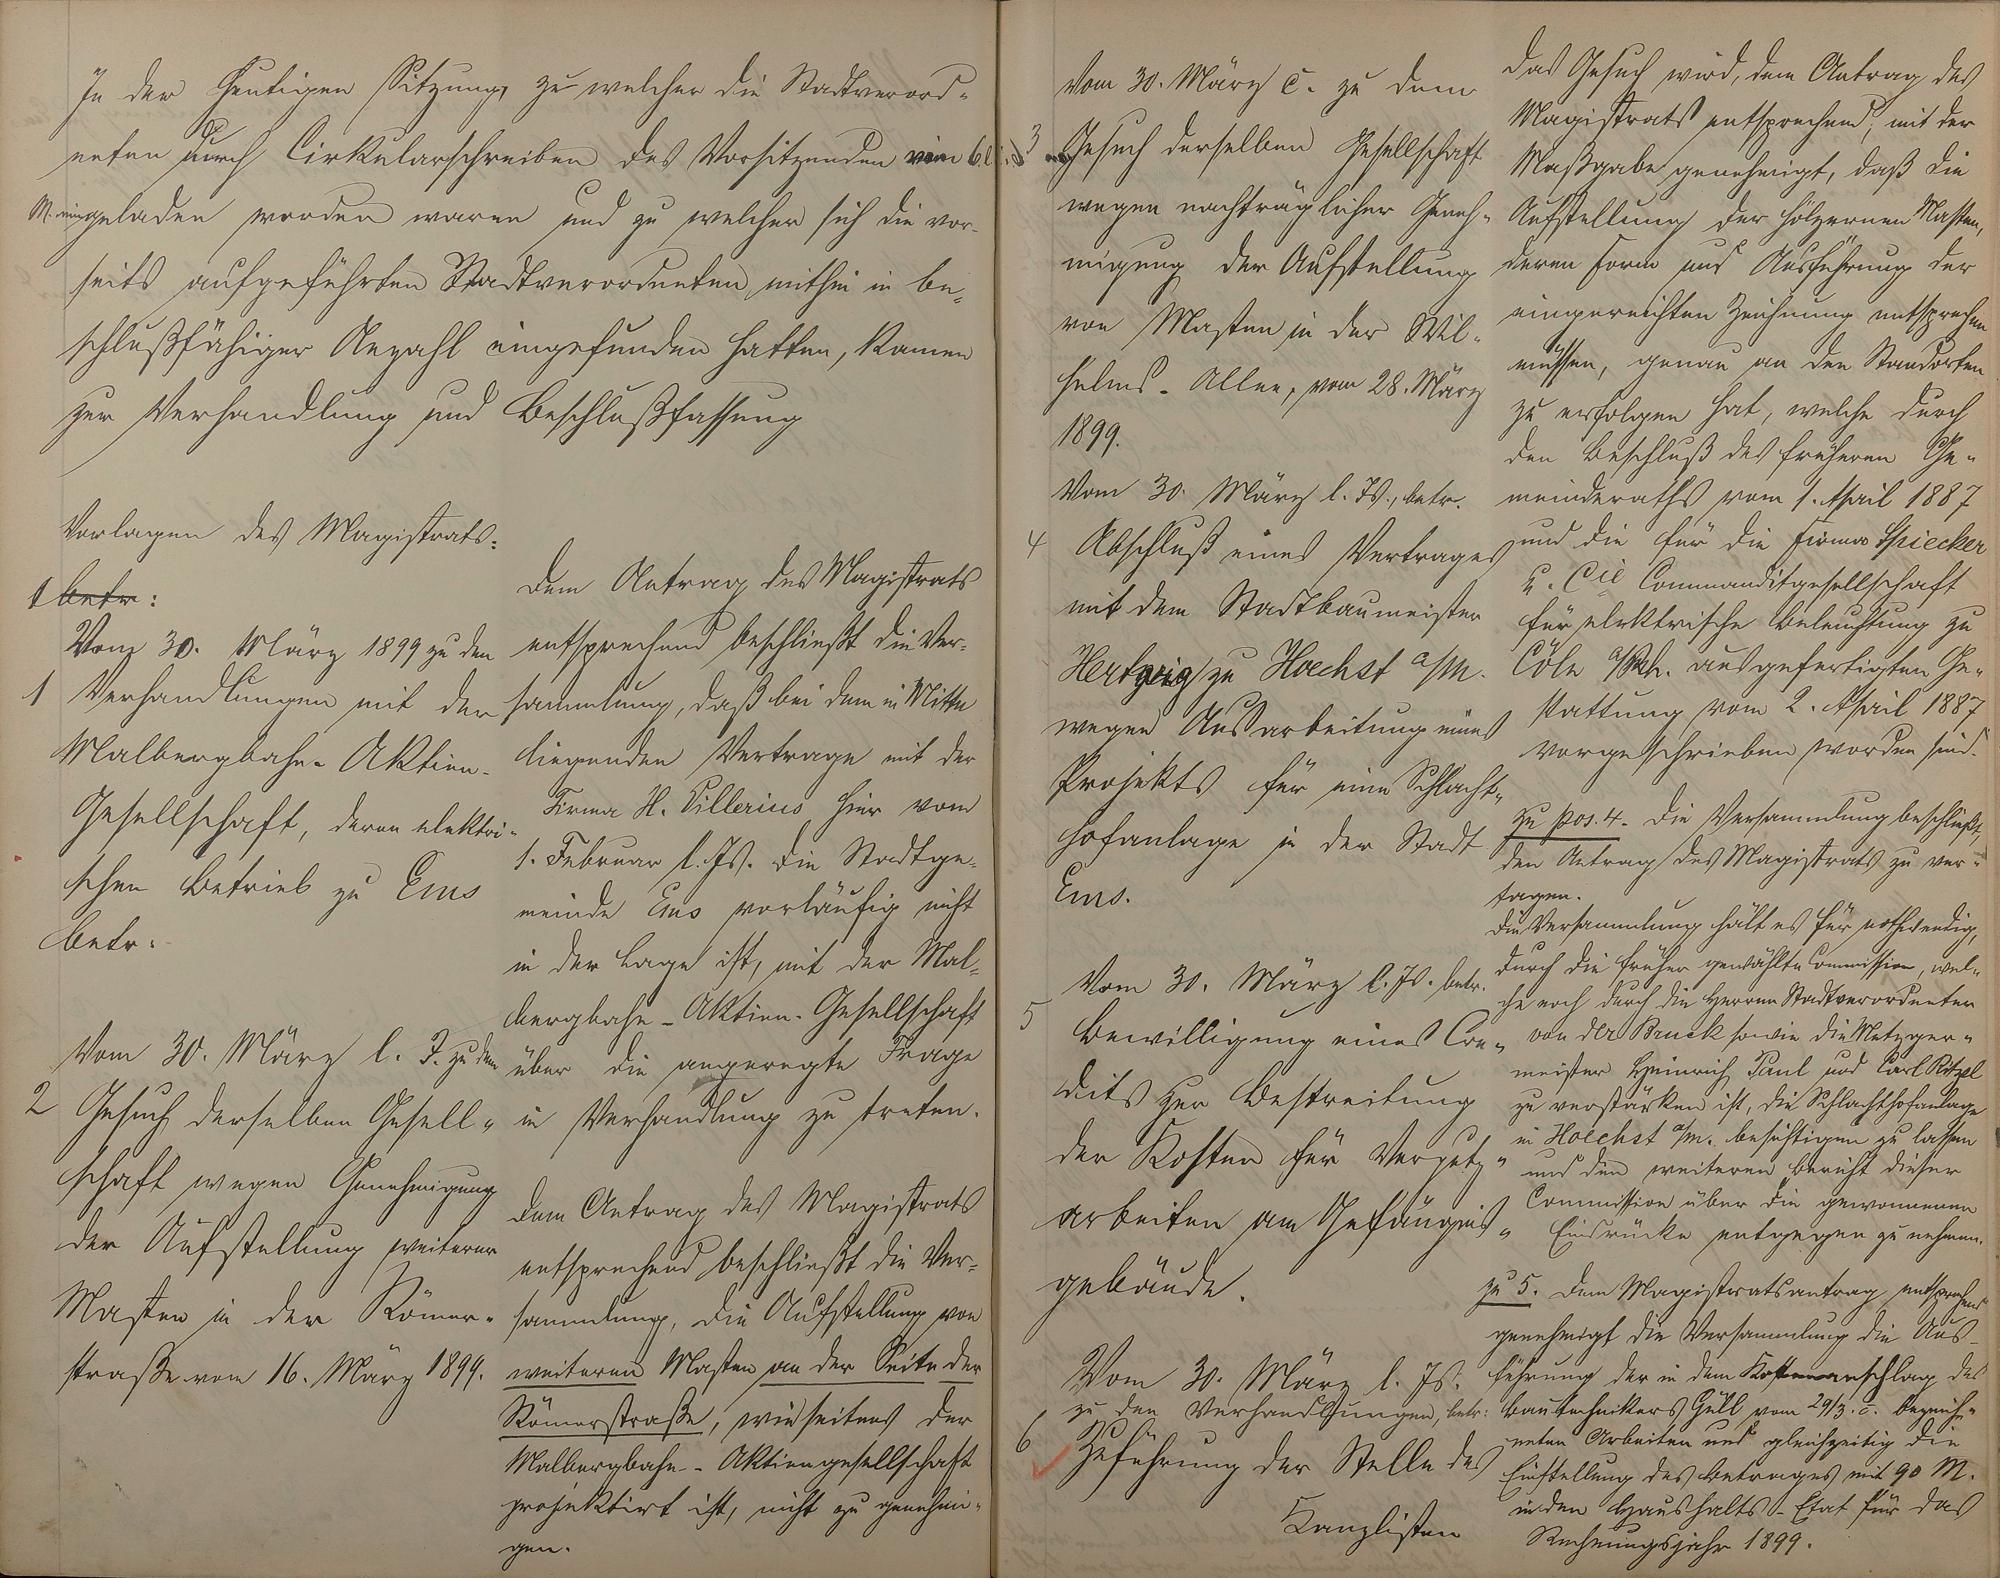 In der heutigen Sitzung, zu welcher die Stadtverord-
neten durch Cirkularschreiben des Vorsitzenden vom 6. d.
M. eingeladen worden waren und zu welcher sich die vor-
seits aufgeführten Stadtverordneten mithin in be-
schlußfähiger Anzahl eingefunden hatten, kamen
zur Verhandlung und Beschlußfassung
Vorlagen des Magistrats:
1 betr:
Vom 30. März 1899 zu den
1 Verhandlungen mit der
Malbergbahn-Aktien-
Gesellschaft, deren elektri-
schen Betrieb zu Ems
betr:
Vom 30. März l. J. zu dem
2 Gesuch derselben Gesell-
schaft wegen Genehmigung
der Aufstellung weiterer
Masten in der Römer-
straße vom 16. März 1899.
Dem Antrag des Magistrats
entsprechend beschließt die Ver-
sammlung, daß bei dem in Mitte
liegenden Vertrage mit der
Firma H. Villerius hier vom
1. Februar l. Js. die Stadtge-
meinde Ems vorläufig nicht
in der Lage ist, mit der Mal-
bergbahn-Aktien-Gesellschaft
über die angeregte Frage
in Verhandlung zu treten.
Dem Antrag des Magistrats
entsprechend beschließt die Ver-
sammlung, die Aufstellung von
weiteren Masten an der Seite der
Römerstraße, wie seitens der
Malbergbahn-Aktiengesellschaft
projektirt ist, nicht zu genehmi-
gen.
Vom 30. März c. zu dem
3 Gesuch derselben Gesellschaft
wegen nachträglicher Geneh-
migung der Aufstellung
von Masten in der Wil-
helms-Allee, vom 28. März
1899.
Vom 30. März l. Js., betr.
4 Abschluß eines Vertrages
mit dem Stadtbaumeister
Hertzig zu Hoechst a/M.
wegen Ausarbeitung eines
Projekts für eine Schlacht-
hofanlage in der Stadt
Ems.
Vom 30. März l. Js. betr.
5 Bewilligung eines Cre-
dits zur Bestreitung
der Kosten für Verputz-
arbeiten am Gefängniß-
gebäude.
Vom 30. März l. Js.
zu den Verhandlungen, betr:
6 Zuführung der Stelle des
Kanzlisten
Das Gesuch wird, dem Antrag des
Magistrats entsprechend, mit der
Maßgabe genehmigt, daß die
Aufstellung der hölzernen Masten,
deren Form und Ausführung der
eingereichten Zeichnung entsprechen
müssen, genau an den Standorten
zu erfolgen hat, welche durch
den Beschluß des früheren Ge-
meinderaths vom 1. April 1887
und die für die Firma Spiecker
u. Cie Commanditgesellschaft
für elektrische Beleuchtung zu
Cöln a/Rh. ausgefertigten Ge-
stattung vom 2. April 1887
vorgeschrieben worden sind.
zu pos. 4. Die Versammlung beschließt,
den Antrag des Magistrats zu ver-
tagen.
Die Versammlung hält es für nothwendig,
durch die früher gewählte Commission, wel-
che noch durch die Herren Stadtverordneten
von der Bruck sowie die Metzger-
meister Heinrich Paul und Carl Ritzel
zu verstärken ist, die Schlachthofanlage
in Hoechst a/M. besichtigen zu lassen
und den weiteren Bericht dieser
Commission über die gewonnenen
Eindrücke entgegen zu nehmen.
zu 5. Dem Magistratsantrag entsprechend
genehmigt die Versammlung die Aus-
führung der in dem Kostenanschlag des
Bautechnikers Güll vom 29/3. c. bezeich-
neten Arbeiten und gleichzeitig die
Einstellung des Betrages mit 90 M.
in den Haushalts-Etat für das
Rechnungsjahr 1899.